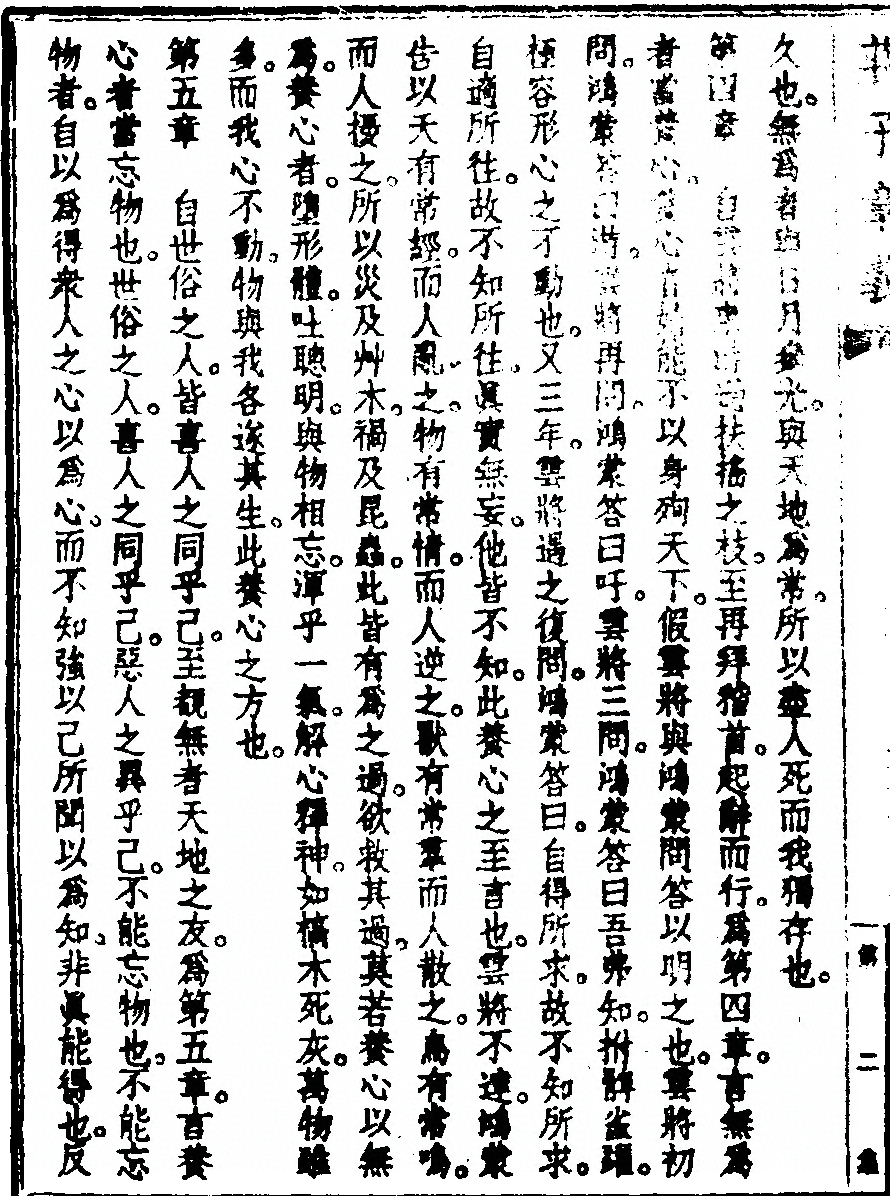 莊子章義
第二集
久也。無為者與日月參光。與天地為常。所以盡人死而我獨存也。
第四章　自雲將東遊過扶搖之枝。至再拜稽首。起辭而行。為第四章。言無為
者當養心。養心者如能不以身殉天下。假雲將與鴻蒙問答以明之也。雲將初
問。鴻蒙答曰遊。雲將再問。鴻蒙答曰吁。雲將三問。鴻蒙答曰吾弗知。拊髀雀躍。
極容形心之不動也。又三年。雲將遇之復問。鴻蒙答曰。自得所求。故不知所求。
自適所往。故不知所往。眞實無妄。他皆不知。此養心之至言也。雲將不達。鴻蒙
告以天有常經。而人亂之。物有常情。而人逆之。獸有常羣而人散之。鳥有常鳴。
而人擾之。所以災及艸木。禍及昆蟲。此皆有為之過。欲救其過。莫若養心以無
為。養心者。墮形體。吐聰明。與物相忘。渾乎一氣。解心釋神。如槁木死灰。萬物雖
多。而我心不動。物與我各遂其生。此養心之方也。
第五章　自世俗之人。皆喜人之同乎己。至覩無者天地之友。為第五章。言養
心者當忘物也。世俗之人。喜人之同乎己。惡人之異乎己。不能忘物也。不能忘
物者。自以爲得衆人之心以爲心。而不知強以己所聞以爲知。非眞能得也。反